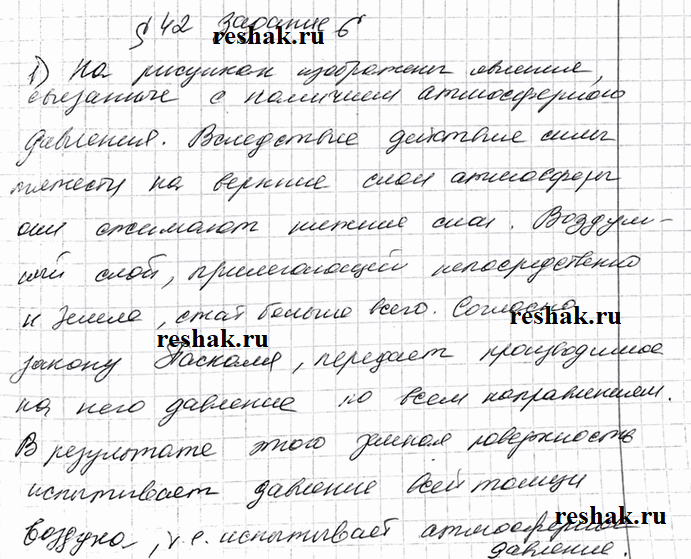 § 42 Задание 6
reshak.ru
1) На рисунках изображены явления,
связанные с наличием атмосферного
давления. Вследствие действие силы
тяжести на верхние слои атмосферы
они сжимают нижние слои. Воздуш-
ный слой, прилегающий непосредственно
к Земле, сжат больше всего. Согласно
reshak.ru
reshak.ru
закону Паскаля, передает производимое
на него давление по всем направлениям.
В результате этого земная поверхность
испытывает давление всей толщи
reshak.ru
воздуха, т.е. испытывает атмосферное
давление.